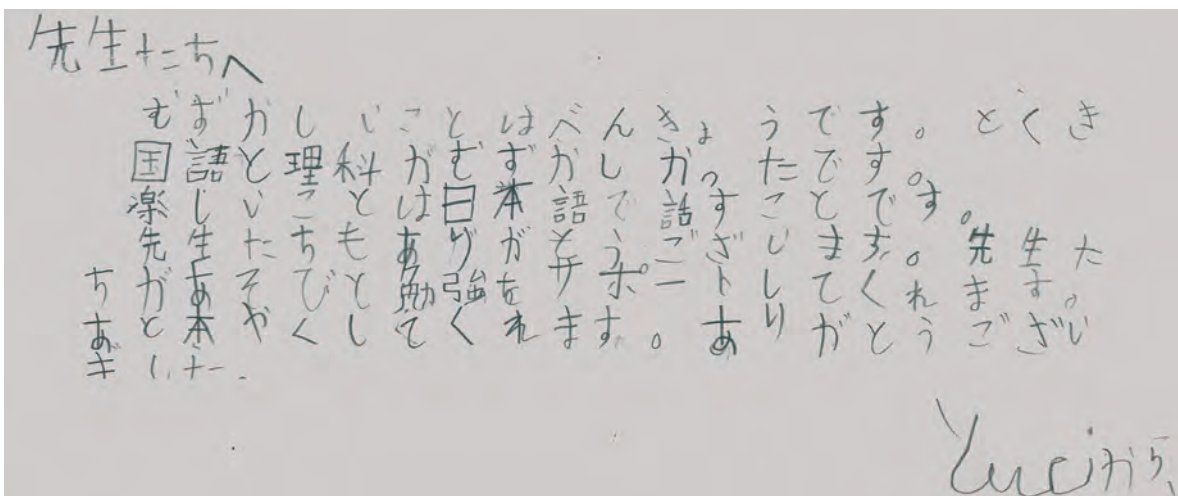 先生たちへ
むずかしいことはべんきょうです。とくき
国語と理科がむずかしかったです。
楽しいことは日本語で話すことです。
先生たちもありがとうございます。先生た
ちがあそびと勉強をサポートしてくれます。
あと本やくしてくれます。ありがとうござい
ました.
Yuciから、